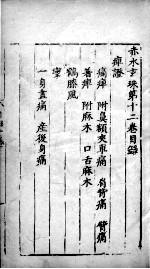 赤水玄珠第十二卷目錄
痺證
痛痺 附鼻頞夾車痛 肩背痛 臂痛
著痺 附麻木 口舌麻木
鶴膝風
攣
一身盡痛 產後身痛